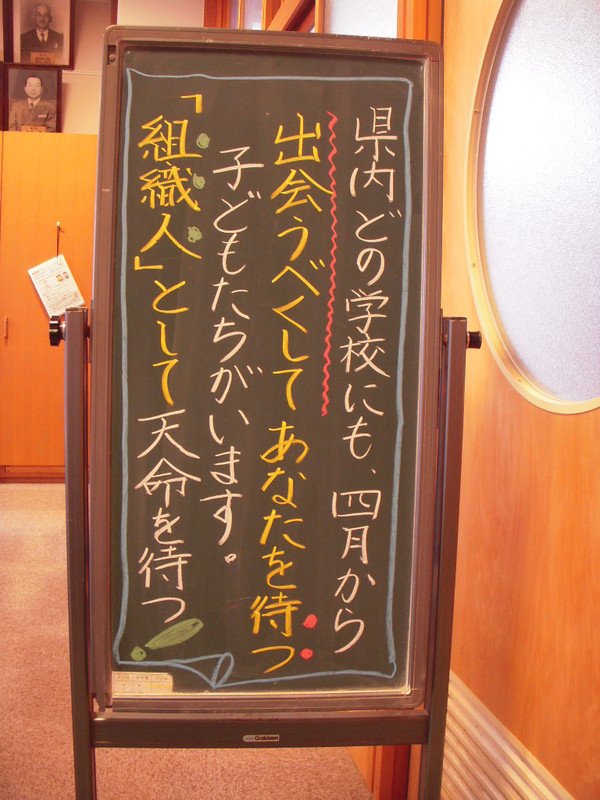 県内どの学校にも、四月から
出会うべくしてあなたを待つ
子どもたちがいます。
「組織人」として天命を待つ
Gakken